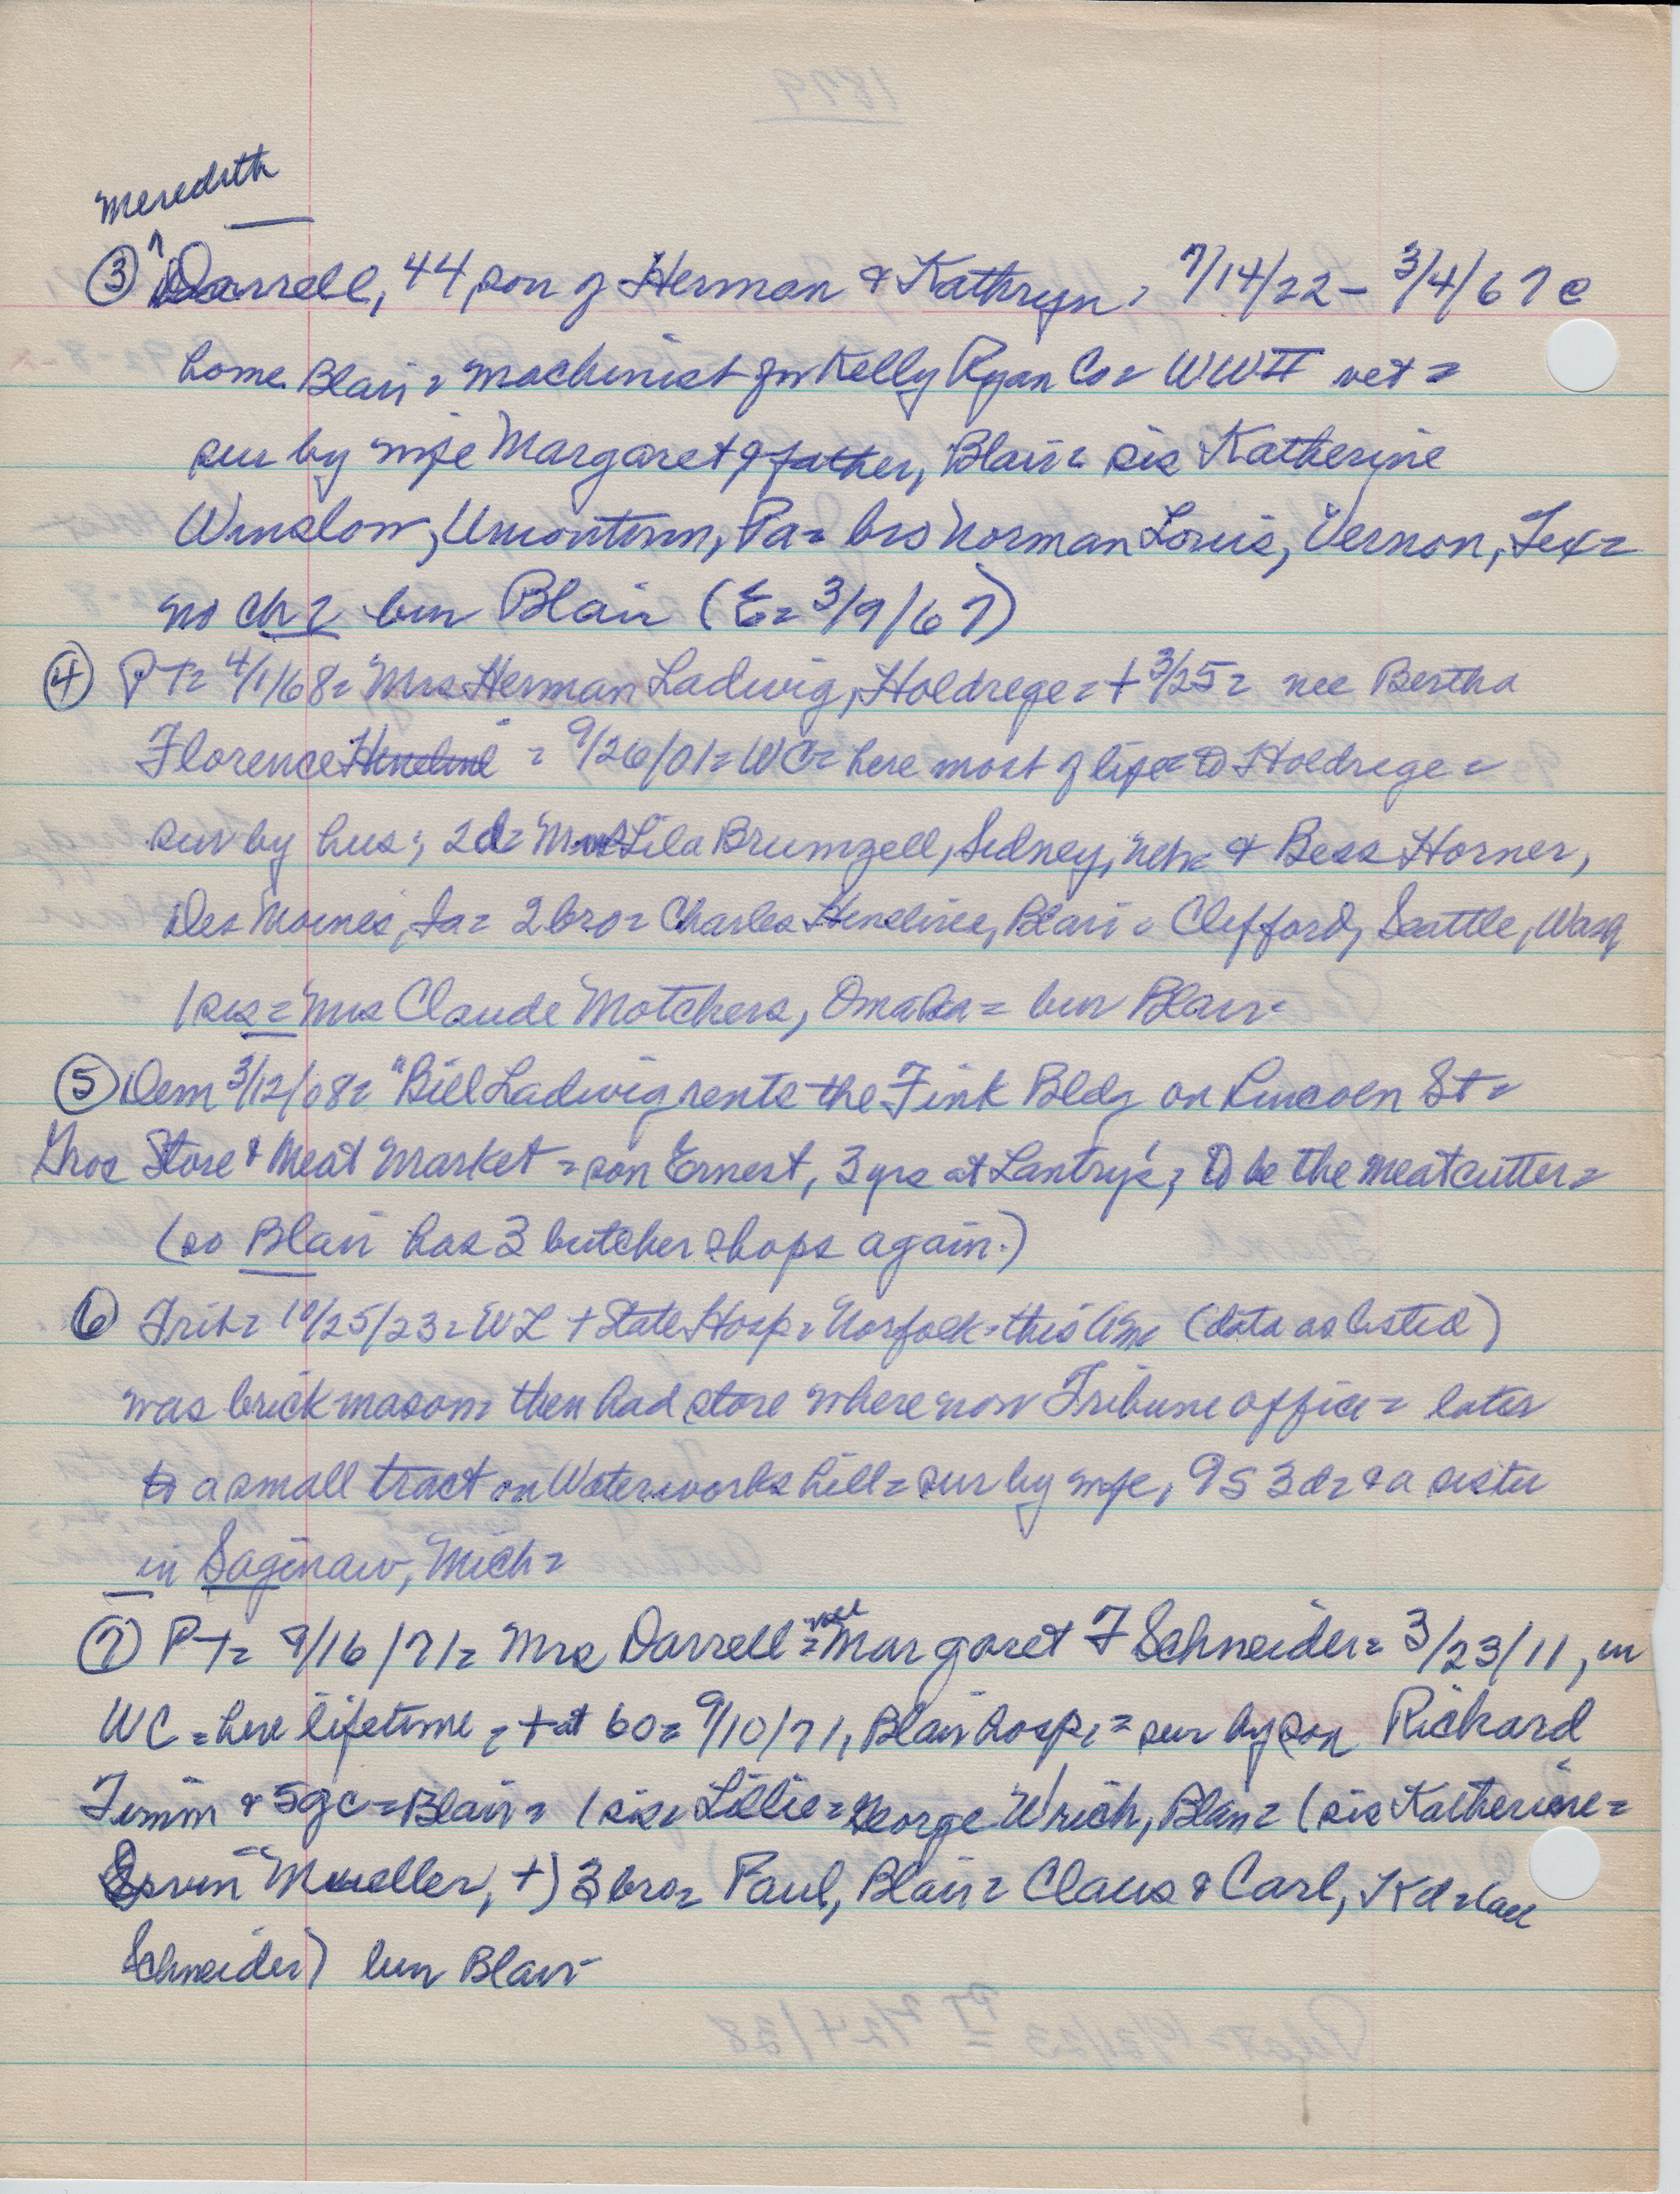 Meredith
③ ^ Darrell, 44, son of Herman & Kathryn, 7/14/22 – 3/4/67 @
home Blair = machinist for Kelly Ryan Co = WWII vet =
sur by wife Margaret & father, Blair = sis Katherine
Winslow, Uniontown, Pa = bro Norman Louis, Vernon, Tex =
no ch = bur Blair (E = 3/9/67)
④ PT = 4/1/68 = Mrs Herman Ladwig, Holdrege = + 3/25 = nee Bertha
Florence Heneline = 9/26/01 = WC = here most of life = to Holdrege =
sur by hus; 2d = Mrs Lila Brumzell, Sidney, Neb = & Bess Horner,
Des Moines, Ia = 2 bro = Charles Heneline, Blair = Clifford, Seattle, Wash
1 sis = Mrs Claude Motchers, Omaha = bur Blair =
⑤ Dem 3/12/08 = "Bill Ladwig rents the Fink Bldg on Lincoln St =
Groc Store & Meat Market = son Ernest, 3 yrs at Lantry's, to be the meatcutter =
(so Blair has 3 butcher shops again.)
⑥ Trib = 10/25/23 = WL + State Hosp = Norfolk = this (data as listed)
was brick mason = then had store where now Tribune office = later
to a small tract on Waterworks hill = sur by wife, 9s 3d = & a sister
in Saginaw, Mich =
⑦ PT = 9/16/71 = Mrs Darrell = Margaret F Schneider = 3/23/11, in
WC = here lifetime, + at 60 = 9/10/71, Blair hosp, = sur by son Richard
Timm & 5gc = Blair = 1 sis, Lillie = George Wrich, Blair = (sis Katherine =
Ervin Mueller, +) 3 bro = Paul, Blair = Claus & Carl, Kd =
Schneider) bur Blair